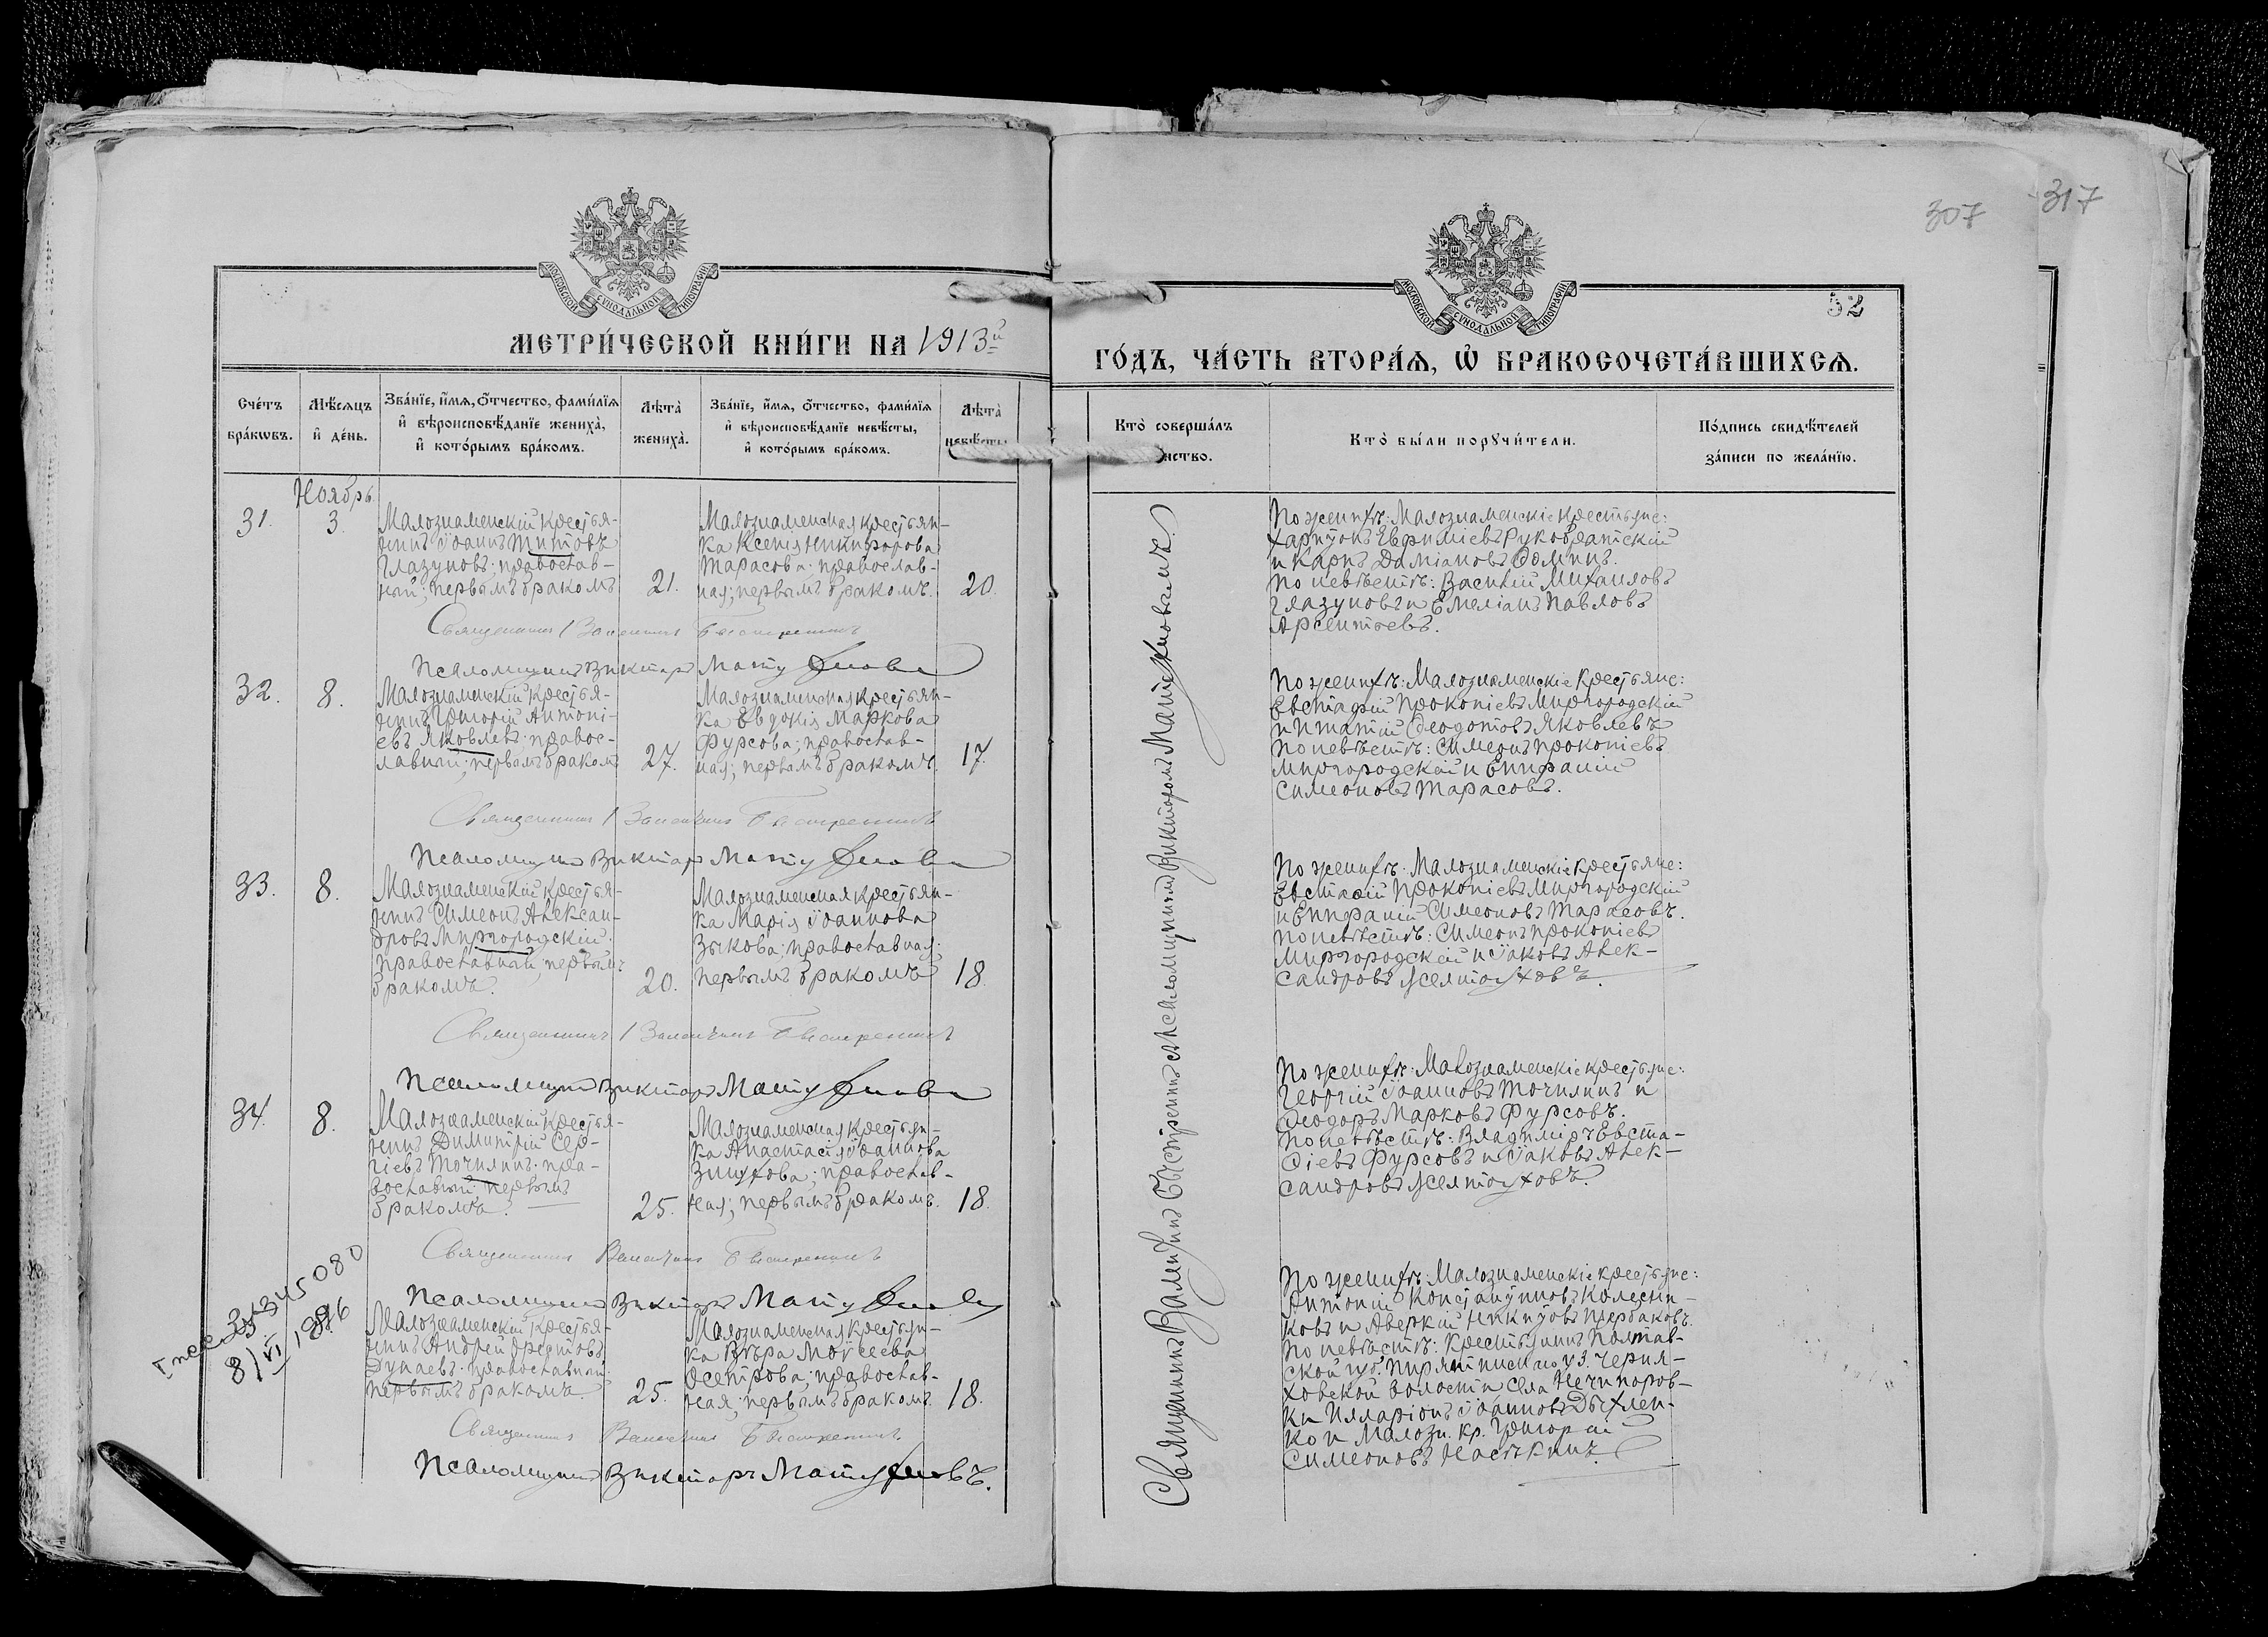 307
317
МОСКОВСКОЙ СѴНОДАЛЬНОЙ ТИПОГРАФІИ
МОСКОВСКОЙ СѴНОДАЛЬНОЙ ТИПОГРАФІИ
52
МЕТРИ́ЧЕСКОЙ КНИ́ГИ НА 1913й
ГО́ДЪ, ЧА́СТЬ ВТОРА́Я, Ѡ БРАКОСОЧЕТА́ВШИХСЯ.
Сче́тъ бра́кѡвъ.
Мѣ́сяцъ и҆ де́нь.
Зва́нїе, и҆́мя, ѻ҆́тчество, фами́лїя
и҆ вѣроисповѣ́данїе жениха̀,
и҆ кото́рымъ бра́комъ.
Лѣта̀ жениха̀.
Зва́нїе, и҆́мя, ѻ҆́тчество, фами́лїя
и҆ вѣроисповѣ́данїе невѣ́сты,
и҆ кото́рымъ бра́комъ.
Лѣта̀ невѣ́сты
Кто̀ соверша́лъ
нство.
Кто̀ бы́ли порꙋчи́тели.
По́дпись свидѣ́телей
за́писи по жела́нїю.
Ноябрь.
31.
3.
Малознаменскій крестья-
нинъ Іоаннъ Титовъ
Глазуновъ; православ-
ный; первымъ бракомъ
21.
Малознаменская крестьян-
ка Ксенія Никифорова
Тарасова; православ-
ная; первымъ бракомъ.
20.
По женихѣ: Малознаменскіе крестьяне:
Харитонъ Евфиміевъ Рукобратскій
и Карпъ Даміановъ Ѳоминъ.
По невѣстѣ: Василій Михаиловъ
Глазуновъ и Емеліанъ Павловъ
Арсентьевъ.
Священникъ Валентинъ Быстренинъ
Псаломщикъ Викторъ Матюхновъ
32.
8.
Малознаменскій крестья-
нинъ Григорій Антоні-
евъ Яковлевъ; правос-
лавный; первымъ бракомъ
27.
Малознаменская крестьян-
ка Евдокія Маркова
Фурсова; православ-
ная; первымъ бракомъ.
17.
По женихѣ: Малознаменскіе крестьяне:
Евстафій Прокопіевъ Миргородскій
и Игнатій Ѳеодотовъ Яковлевъ
По невѣстѣ: Симеонъ Прокопіевъ
Миргородскій и Епифаній
Симеоновъ Тарасовъ.
Священникъ Валентинъ Быстренинъ
Псаломщикъ Викторъ Матюхновъ
33.
8.
Малознаменскій крестья-
нинъ Симеонъ Алексан-
дровъ Миргородскій;
православный; первымъ
бракомъ.
20.
Малознаменская крестьян-
ка Марія Іоаннова
Зыкова; православная;
первымъ бракомъ
18.
По женихѣ: Малознаменскіе крестьяне:
Евстафій Прокопіевъ Миргородскій
и Епифаній Симеоновъ Тарасовъ.
По невѣстѣ: Симеонъ Прокопіевъ
Миргородскій и Іаковъ Алек-
сандровъ Желтоуховъ.
Священникъ Валентинъ Быстренинъ
Псаломщикъ Викторъ Матюхновъ
34.
8.
Малознаменскій крестья-
нинъ Димитрій Сер-
гіевъ Точилинъ; пра-
вославный; первымъ
бракомъ.
25.
Малознаменская крестьян-
ка Анастасія Іоаннова
православ-
ная; первымъ бракомъ.
18.
По женихѣ: Малознаменскіе крестьяне:
Георгій Іоанновъ Точилинъ и
Ѳеодоръ Марковъ Фурсовъ.
По невѣстѣ: Владиміръ Евста-
ѳіевъ Фурсовъ и Іаковъ Алек-
сандровъ Желтоуховъ.
Священникъ Валентинъ Быстренинъ
Псаломщикъ Викторъ Матюхновъ
8/VI
Малознаменскій крестья-
нинъ Андрей
Дунаевъ; православный;
первымъ бракомъ.
25.
Малознаменская крестьян-
ка Вѣра Моѵсеева
Осетрова; православ-
ная; первымъ бракомъ.
18.
По женихѣ: Малознаменскіе крестьяне:
Антоній Константиновъ Колесни-
ковъ и Аверкій Никитовъ Щербаковъ.
По невѣстѣ: Крестьянинъ Полтав-
ской губ. Пирятинскаго уз. Черня-
ховской волости села Нечипоров-
ки Илларіонъ Іоанновъ Дыхлен-
ко и Малозн. кр. Григорій
Симеоновъ Насѣкинъ.
Священникъ Валентинъ Быстренинъ
Псаломщикъ Викторъ Матюхновъ.
Священникъ Валентинъ Быстренинъ съ псаломщикомъ Викторомъ Матюхновымъ.